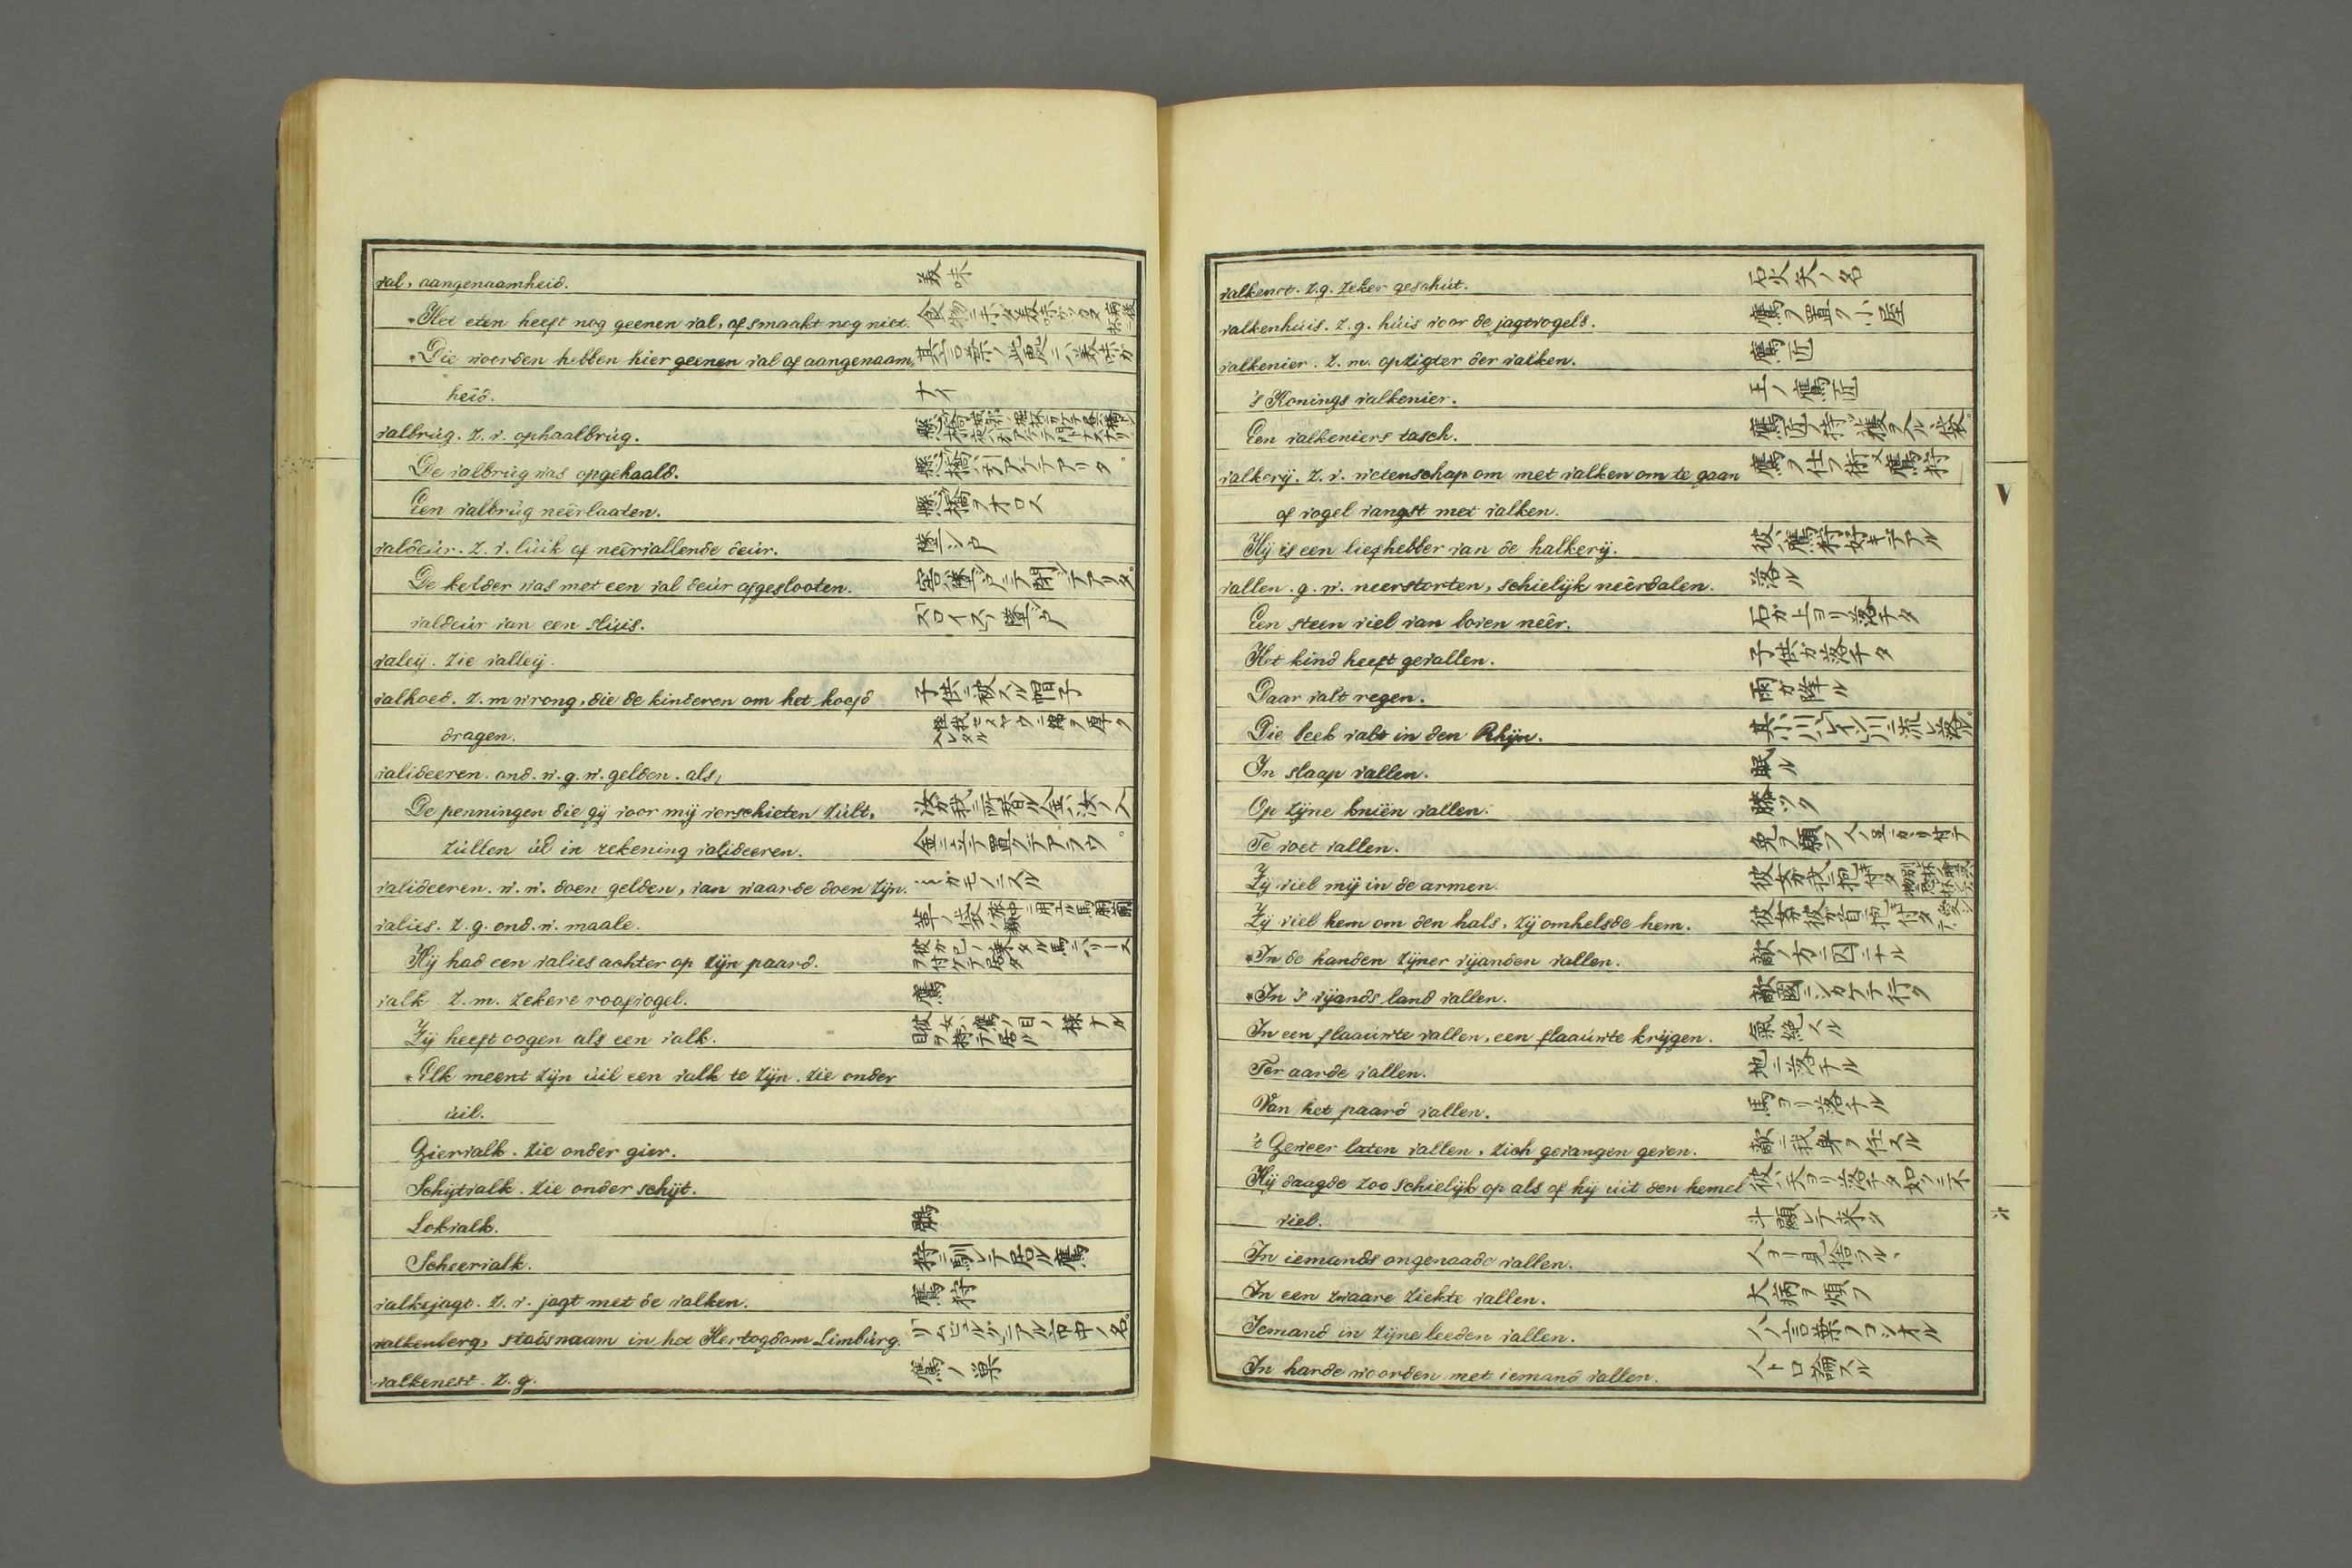 val, aangenaamheid. 美味
*Het eten heeft nog geenen val, of smaakt nog niet. 食物ニホダ美味ガツカヌ
*Die woorden hebben hier geenen val of aangenaam, 其言葉ノ此處ニハ美味ガ
heid. ナイ
valbrúg. z. v. ophaalbrúg.
De valbrúg was opgehaald. 懸橋ハ引アゲテアリタ。
Een valbrúg neêrlaaten. 懸橋ヲオロス
valdeúr. z. v. lúik of neêrvallende deúr. 墜シ戸
De kelder was met een val deúr afgeslooten. 窖ハ墜シ戸ニテ閉シテアリタ。
valdeúr van een slúis. スロイスノ墜シ戸
valeij. zie valleij.
valhoed. z. m wrong, die de kinderen om het hoofd 子供ニ被スル帽子
dragen. 怪我セヌヤウニ綿ヲ厚ク入レタル
valideeren. ond. w. g. w. gelden. als,
De penningen die gij voor mij verschieten zúlt, 汝ガ我ニ所替ル金ハ汝ノ入
zúllen úl in rekening valideeren. 金ニ立テ置クデアラウ。
valideeren. w. w. doen gelden, van waarde doen zijn.
valies. z. g. ond. w. maale. 革ノ袋
Hij had een valies achter op zijn paard. 彼ガ己ノ乗タル馬ニハリースヲ付ケテ居タ
valk. z. m. zekere roofvogel. 鷹
Zij heeft oogen als een valk. 彼女ハ鷹ノ目ノ様ナル目ヲ持テ居ル
*Elk meent zijn úil een valk te zijn. zie onder
úil.
Giervalk. zie onder gier.
Schijtvalk. zie onder schijt.
Lokvalk.
Scheervalk. 狩ニ馴レテ居ル鷹
valkejagt. z. v. jagt met de valken. 鷹狩
valkenberg, stadsnaam in het Hertogdom Limbúrg. リムビュルグニアル市中ノ名。
valkenest. z. g. 鷹ノ巣
valkenet. z. g. zeker geschút. 石火矢ノ名
valkenhúis. z. g. húis voor de jagtvogels. 鷹ヲ置ク小屋
valkenier. z. m. opzigter der valken. 鷹匠
's Konings valkenier. 王ノ鷹匠
Een valkeniers tasch. 鷹匠ノ狩ニ獲スル袋。
valkerij. z. v. wetenschap om met valken om te gaan 鷹ヲ仕フ術又鷹狩
of vogel vangst met valken.
Hij is een liefhebber van de halkerij. 彼ハ鷹狩好キデアル
vallen. g. w. neerstorten, schielijk neêrdalen. 落ル
Een steen viel van boven neêr. 石ガ上ヨリ落チタ
Het kind heeft gevallen. 子供ガ落チタ
Daar valt regen. 雨ガ降ル
Die beek valt in den Rhijn. 其小川ハレイン川ニ流レ落ル。
In slaap vallen. 眠ル
Op zijne kniën vallen. 膝ツク
Te voet vallen. 免ヲ願フ
Zij viel mij in de armen. 彼女ガ我ニ抱キ付タ
Zij viel hem om den hals, zij omhelsde hem. 彼女ガ彼ガ首ニ抱キ付タ
*In de handen zijner vijanden vallen. 敵ノ方ニ囚ニナル
*In 's vijands land vallen. 敵國ニシカケテ行ク
In een flaaúwte vallen, een flaaúwte krijgen. 氣絶スル
Ter aarde vallen. 地ニ落チル
Van het paard vallen. 馬ヨリ落チル
't Geweer laten vallen, zich gevangen geven. 敵ニ我身ヲ任スル
Hij daagde zoo schielijk op als of hij úit den hemel 彼ハ天ヨリ落チタ如クニ不
viel. 斗顯レテ来タ
In iemands ongenaade vallen. 人ヨリ見捨ラルヽ
In een zwaare ziekte vallen. 大病ヲ煩フ
Iemand in zijne leeden vallen. 人ノ言葉ヲコジオル
In harde woorden met iemand vallen. 人ト口論スル
V